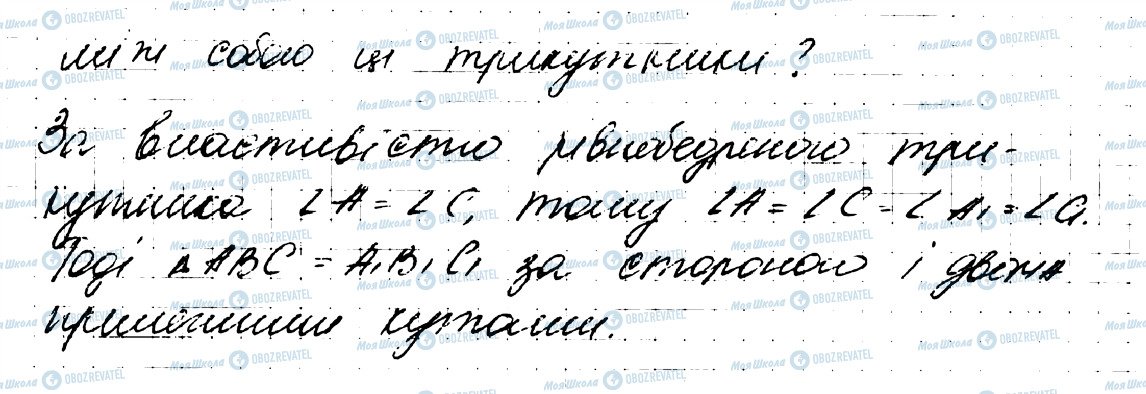 між собою ці трикутники?
За властивістю рівнобедреного три-
кутника ∠A = ∠C, тому ∠A = ∠C = ∠A₁ = ∠C₁.
Тоді ▵ABC = A₁B₁C₁ за стороною і двома
прилеглими кутами.